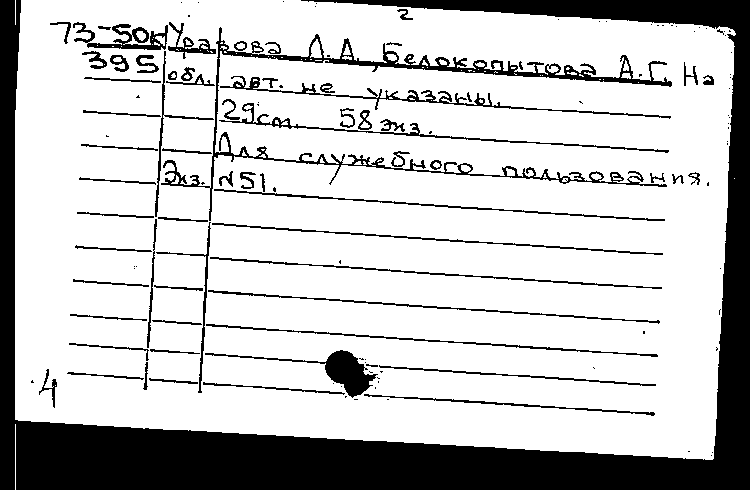 2
73-50к Уразова Л.А., Белокопытова А.Г. На
395 обл. авт. не указаны.
29см. 58 экз.
Для служебного пользования.
Экз. №51.
4